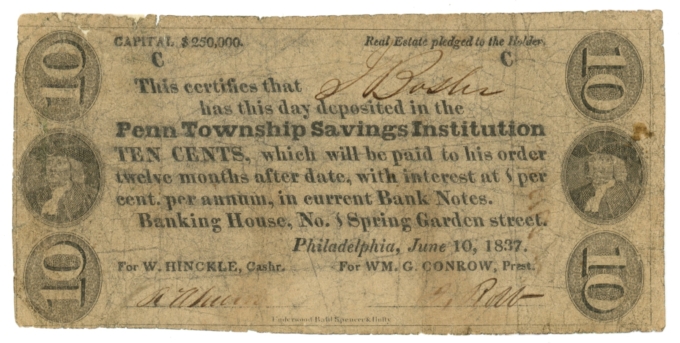 CAPITAL $250,000. Real Estate pledged to the Holder.
C C
10 10
This certifies that J Bosler
has this day deposited in the
Penn Township Savings Institution
TEN CENTS, which will be paid to his order
twelve months after date, with interest at per
cent. per annum, in current Bank Notes.
Banking House, No. Spring Garden street.
Philadelphia, June 10, 1837.
For W. HINCKLE, Cashr. For WM. G. CONROW, Prest.
10 10
Underwood Bald Spencer & Hufty